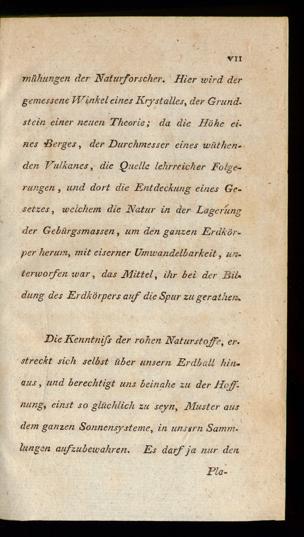 VII
mühungen der Naturforscher. Hier wird der
gemessene Winkel eines Krystalles, der Grund-
stein einer neuen Theorie; da die Höhe ei-
nes Berges, der Durchmesser eines wüthen-
den Vulkanes, die Quelle lehrreicher Folge-
rungen, und dort die Entdeckung eines Ge-
setzes, welchem die Natur in der Lagerung
der Gebürgsmassen, um den ganzen Erdkör-
per herum, mit eiserner Umwandelbarkeit, un-
terworfen war, das Mittel, ihr bei der Bil-
dung des Erdkörpers auf die Spur zu gerathen.
Die Kenntniſs der rohen Naturstoffe, er-
streckt sich selbst über unsern Erdball hin-
aus, und berechtigt uns beinahe zu der Hoff-
nung, einst so glücklich zu seyn, Muster aus
dem ganzen Sonnensysteme, in unsern Samm-
lungen aufzubewahren. Es darf ja nur den
Pla-